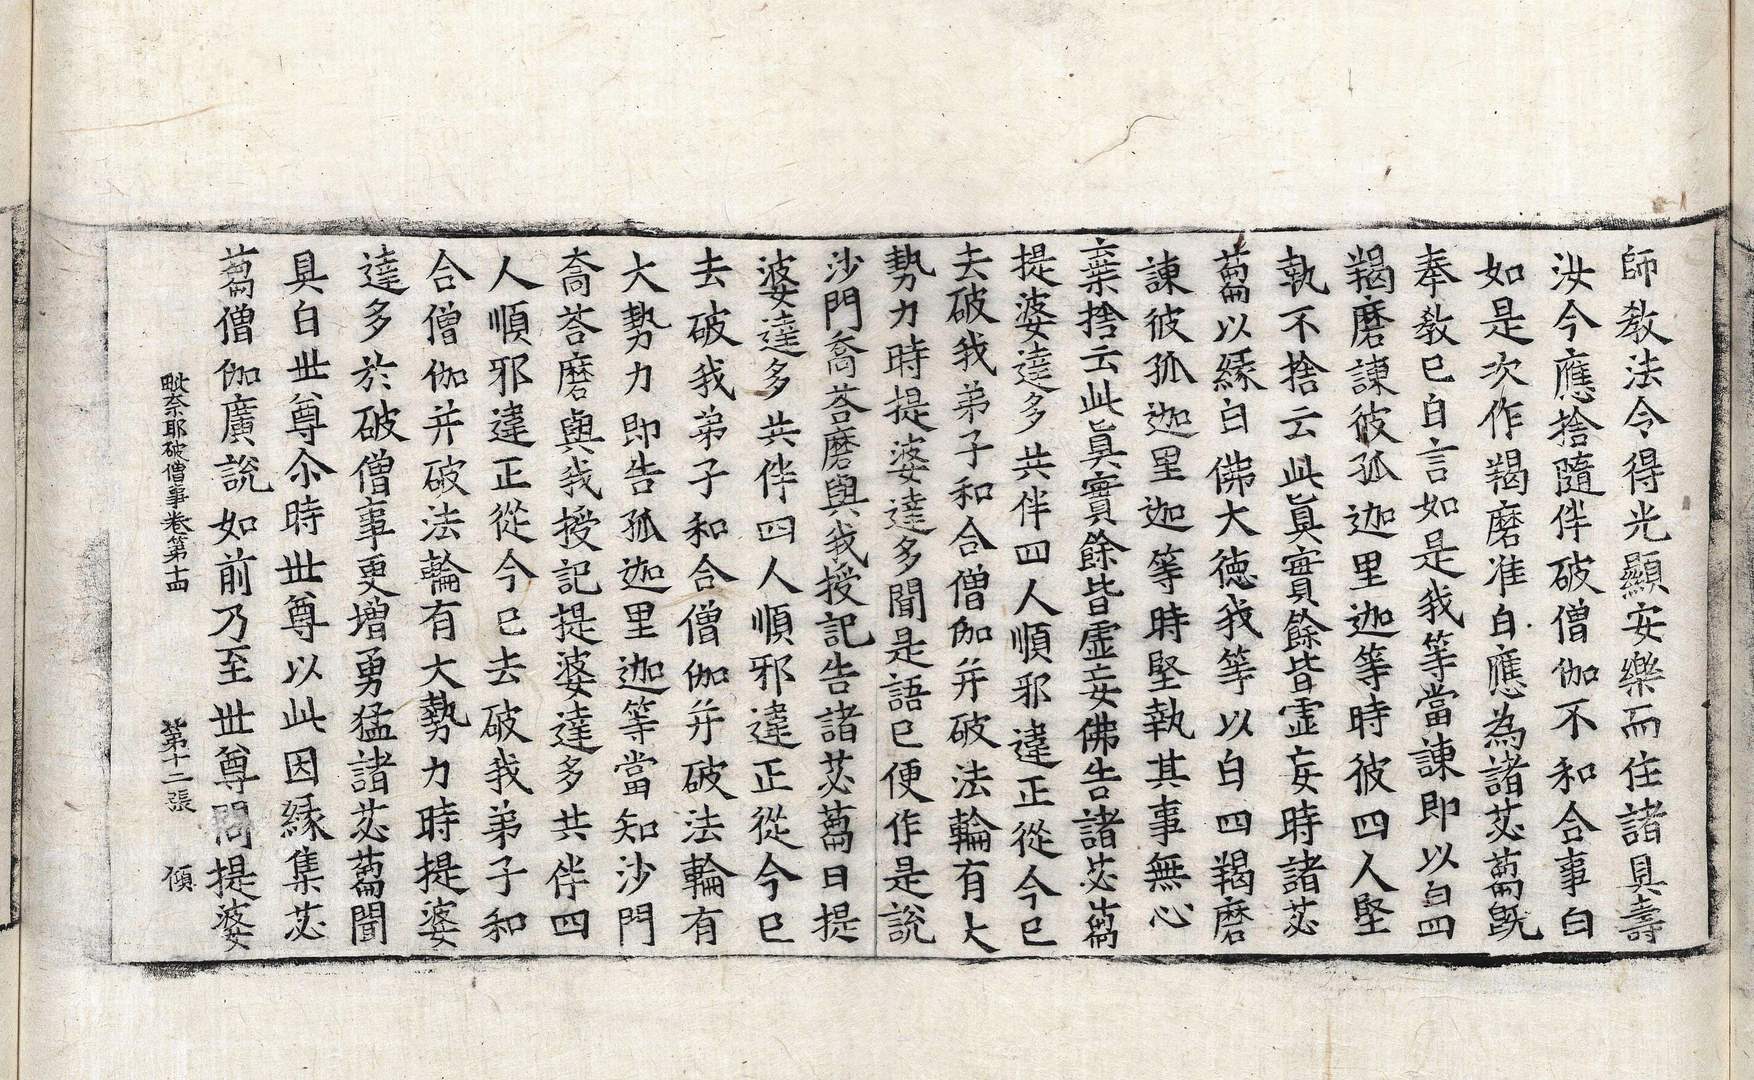 師教法令得光顯安樂而住諸具壽
汝今應捨隨伴破僧伽不和合事白
如是次作羯磨准白應為諸苾蒭旣
奉教已白言如是我等當諫即以白四
羯磨諫彼孤迦里迦等時彼四人堅
執不捨云此眞實餘皆虛妄時諸苾
蒭以緣白佛大德我等以白四羯磨
諫彼孤迦里迦等時堅執其事無心
棄捨云此眞實餘皆虛妄佛告諸苾蒭
提婆達多共伴四人順邪違正從今已
去破我弟子和合僧伽并破法輪有大
勢力時提婆達多聞是語已便作是說
沙門喬荅磨與我授記告諸苾蒭曰提
婆達多共伴四人順邪違正從今已
去破我弟子和合僧伽并破法輪有
大勢力即告孤迦里迦等當知沙門
喬荅磨與我授記提婆達多共伴四
人順邪違正從今已去破我弟子和
合僧伽并破法輪有大勢力時提婆
達多於破僧事更增勇猛諸苾蒭聞
具白世尊尒時世尊以此因緣集苾
蒭僧伽廣說如前乃至世尊問提婆
毗奈耶破僧事卷第十四 第十二張 傾